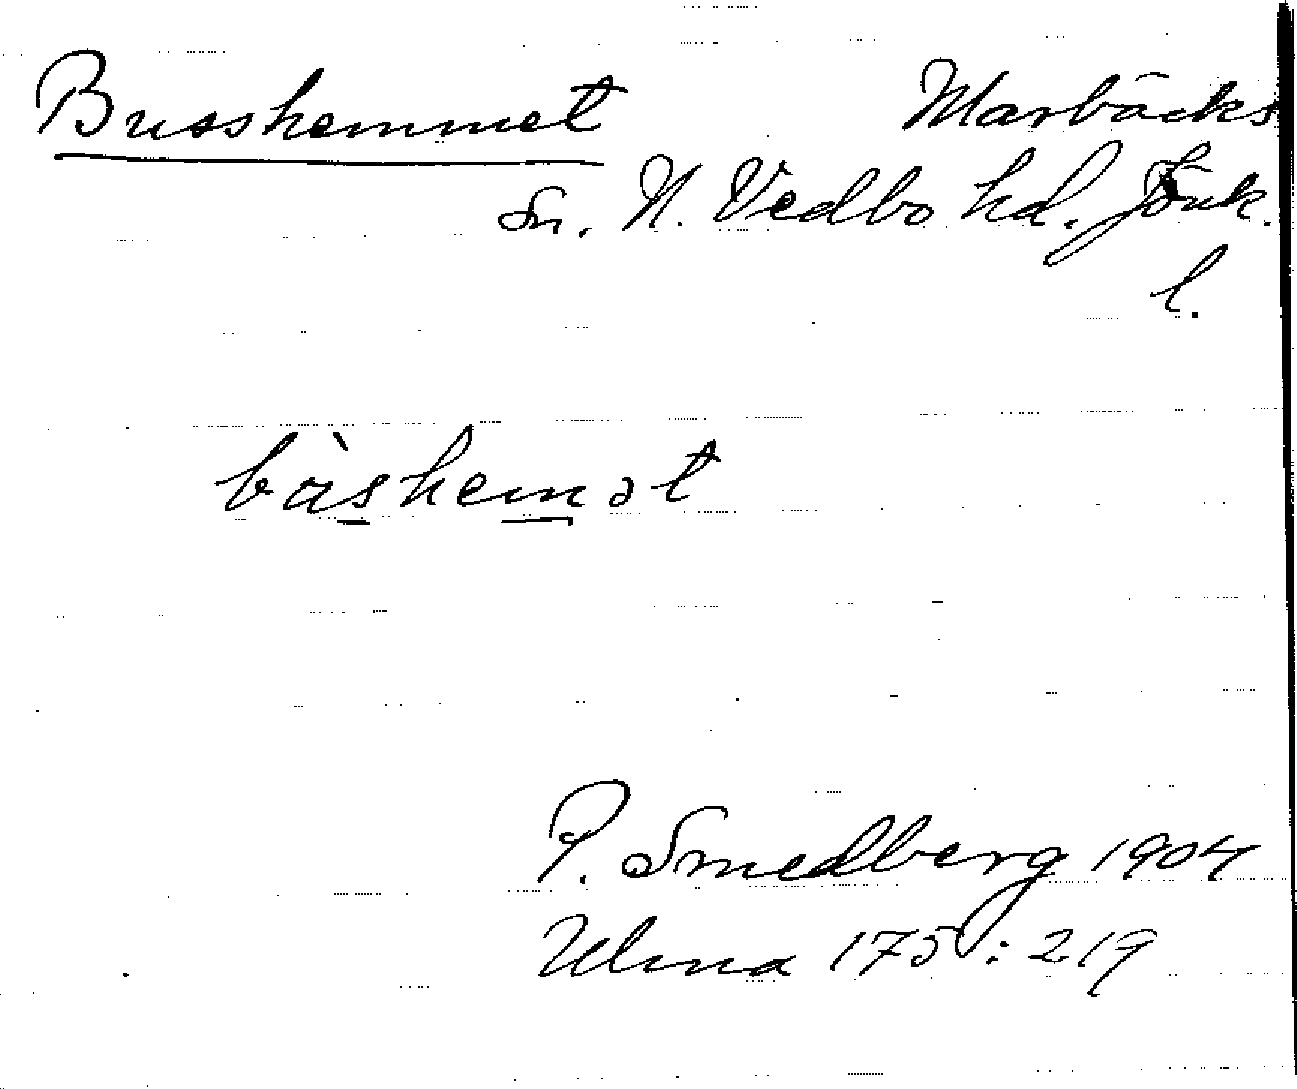 Busshemmet Marbäcks
sn. N. Vedbo hd. Jönk.
l.
bàshemət
P. Smedberg 1904
Ulma 175:219